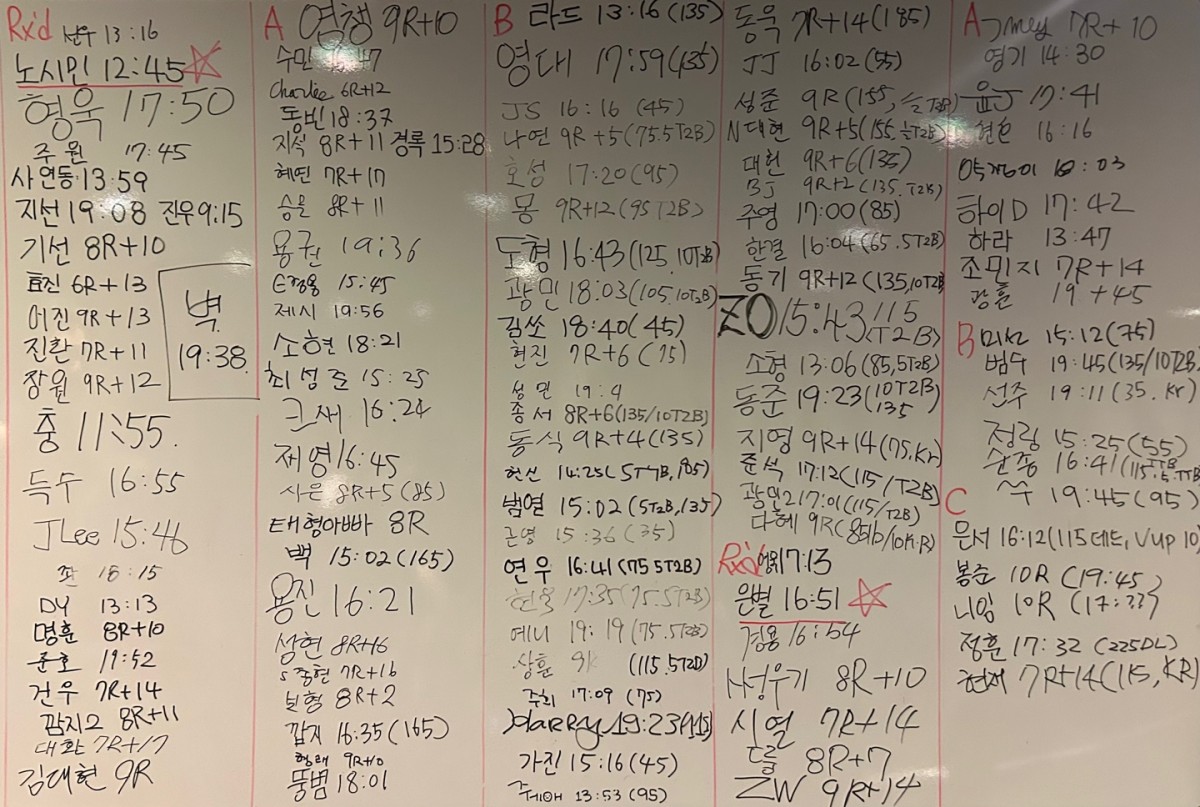 Rx'd 선우 13:16
노시민 12:45
형욱 17:50
주원 17:45
사연동 13:59
지선 19:08 진우 9:15
기선 8R+10
효진 6R+13
어진 9R+13
진환 7R+11
장원 9R+12
벽
19:38
충 11:55.
득수 16:55
JLee 15:46
18:15
DY 13:13
명훈 8R+10
윤호 19:52
건우 7R+14
깜지2 8R+11
대환 7R+17
김대현 9R
A 영행 9R+10
수민
Charlee 6R+12
동빈 18:37
지식 8R+11 경록 15:28
혜연 7R+17
승을 8R+11
용권 19:36
E경용 15:45
제시 19:56
소현 18:21
최성준 15:25
그새 16:24
재영 16:45
시은 8R+5(85)
태형아빠 8R
백 15:02(165)
용진 16:21
성현 8R+16
S종현 7R+16
보형 8R+2
깜지 16:35(165)
형래 9R+10
뚱범 18:01
B 라드 13:16(135)
영대 17:59(135)
JS 16:16 (45)
나연 9R+5(75.5T2B)
호성 17:20(95)
몽 9R+12(95T2B)
도형 16:43(125,10T2B)
광민 18:03(105,10T2B)
김쏘 18:40(45)
현진 7R+6(75)
성민 19:4
종서 8R+6(135/10T2B)
동식 9R+4(135)
현신 14:25
범열 15:02(5T2B,135)
근영 15:36(35)
연우 16:41(75 5T2B)
17:35(75.5T2B)
예니 19:19(75.5T2B)
상훈 (115.5T2B)
주희 17:09 (75)
Harry 19:23(115)
가진 15:16(45)
13:53(95)
동욱 7R+14(185)
JJ 16:02(55)
성준 9R(155,
N대현 9R+5(155
대헌 9R+6(135)
BJ 9R+2(135.T2B)
주영 17:00(85)
한결 16:04(65.5T2B)
동기 9R+12(135,10T2B)
ZO 15:43(115
(T2B)
소형 13:06(85,5T2B)
동준 19:23(10T2B
135
지영 9R+14(75,Kr)
준석 17:12(115/T2B)
광민2 17:01(115/T2B)
다혜 9R(85lb/10K.R)
Rx'd 17:13
은별 16:51
경용 16:54
N성우기 8R+10
시열 7R+14
8R+7
ZW 9R+14
A Jmey 7R+10
영기 14:30
윤J 17:41
현호 16:16
하이D 17:42
하라 13:47
조민지 7R+14
광훈 19+45
B 미선 15:12(75)
범수 19:45(135/10T2B)
선주 19:11(35.Kr)
정링 15:25(55)
16:41(115
쑤 19:45(95)
C
문서 16:12(115데드, Vup 10)
봉순 10R (19:45)
니임 10R (17:33)
정훈 17:32 (225DL)
현지 7R+14(115,KR)